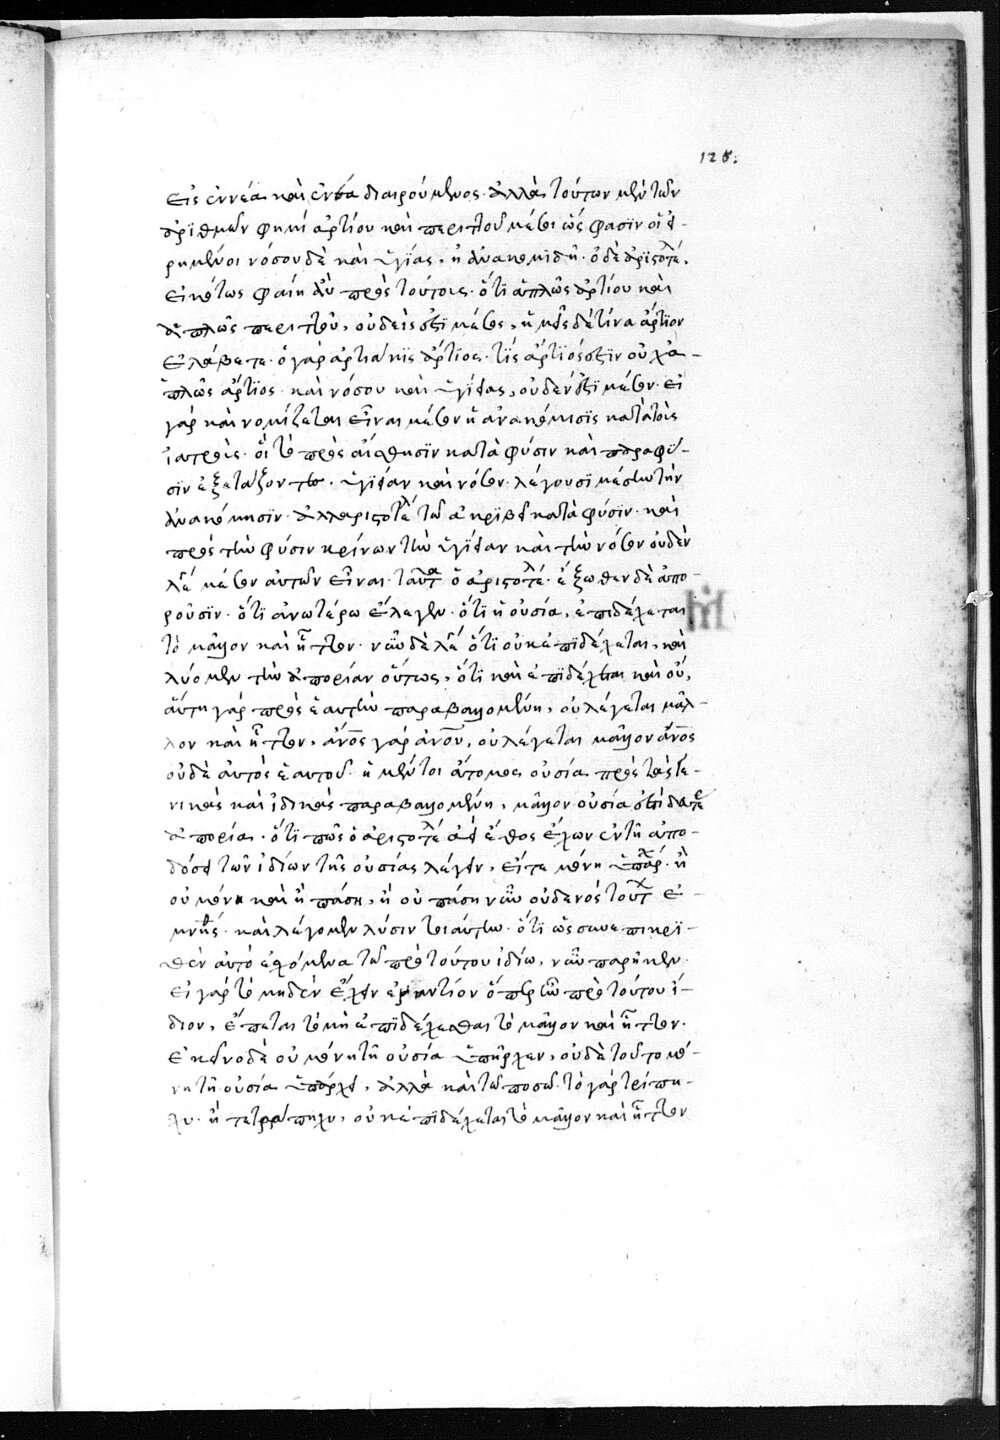 128:
εἰς ἐννέα καὶ ἐννέα διαιρούμενος. ἀλλὰ τούτων μὲν τῶν
ἀριθμῶν φημὶ ἀρτίου καὶ περιττοῦ μέσοι ὥς φασιν οἱ εἰ-
ρημένοι νόσου δὲ καὶ ὑγίας, ἡ ἀνακομιδή. ὁ δὲ ἀριστοτέλ
εἰκότως φαίη ἂν πρὸς τούτοις. ὅτι ἁπλῶς ἀρτίου καὶ
ἁπλῶς περιττοῦ, οὐδείς ἐστι μέσος, ὑμεῖς δὲ τίνα ἄρτιον
ἐλάβετε. ὁ γὰρ ἀρτιάκις ἄρτιος. τίς ἄρτιός ἐστιν οὐχ ἁ-
πλῶς ἄρτιος. καὶ νόσου καὶ ὑγίειας, οὐδέν ἐστι μέσον. εἰ
γὰρ καὶ νομίζεται εἶναι μέσον ἡ ἀνακόμισις κατὰ τοὺς
ἰατρούς. οἳ τὸ πρὸς αἴσθησιν κατὰ φύσιν καὶ παραφύ-
σιν ἐξετάζοντες. ὑγίειαν καὶ νόσον. λέγουσι μέσην τὴν
ἀνακόμησιν. ἀλλ' ἀριστοτέλ τῷ ἀκριβεῖ κατὰ φύσιν. καὶ
πρὸς τὴν φύσιν κρίνων τὴν ὑγίειαν καὶ τὴν νόσον οὐδὲν
λέ μέσον αὐτῶν εἶναι. ταῦτα ὁ ἀριστοτέλ. ἔξωθεν δὲ ἀπο-
ροῦσιν. ὅτι ἀνωτέρω ἔλεγεν. ὅτι ἡ οὐσία, ἐπιδέχεται
τὸ μᾶλλον καὶ ἧττον. νῦν δὲ λέ ὅτι οὐκ ἐπιδέχεται, καὶ
λύομεν τὴν ἀπορίαν οὕτως, ὅτι καὶ ἐπιδέχεται καὶ οὔ,
αὕτη γὰρ πρὸς ἑαυτὴν παραβαλλομένη, οὐ λέγεται μᾶλ-
λον καὶ ἧττον, ἄνος γὰρ ἀνου, οὐ λέγεται μᾶλλον ἄνος
οὐδὲ αὐτὸς ἑαυτοῦ. ἡ μέντοι ἄτομος οὐσία πρὸς τὰς γε-
νικὰς καὶ ἰδικὰς παραβαλλομένη, μᾶλλον οὐσία ἐστί
ἀπορία. ὅτι πῶς ὁ ἀριστοτέλ ἀεὶ ἔθος ἔχων ἐν τῇ ἀπο-
δόσει τῶν ἰδίων τῆς οὐσίας λέγειν, εἴτε μόνῃ ὑπάρχ. ἢ
οὐ μόνῃ καὶ ἢ πάσῃ, ἢ οὐ πάσῃ νῦν οὐδενὸς τούτ ἐ-
μνήσθ. καὶ λέγομεν λύσιν τοιαύτην. ὅτι ὡς σαυεπικρι-
θὲν αὐτὸ ἑπόμενα τῷ πρὸ τούτου ἰδίῳ, νῦν παρῆκεν.
εἰ γὰρ τὸ μηδὲν ἔχειν ἐναντίον ὅπερ ὢν πρὸ τούτου ἴ-
διον, ἕπεται τὸ μὴ ἐπιδέχεσθαι τὸ μᾶλλον καὶ ἧττον.
ἐκεῖνο δὲ οὐ μόνῃ τῇ οὐσία ὑπῆρχεν, οὐδὲ τοῦτο μό-
νῃ τῇ οὐσία ὑπάρχει, ἀλλὰ καὶ τῷ ποσῷ. τὸ γὰρ τρίπη-
χυ. ἢ τετράπηχυ, οὐκ ἐπιδέχεται τὸ μᾶλλον καὶ ἧττον